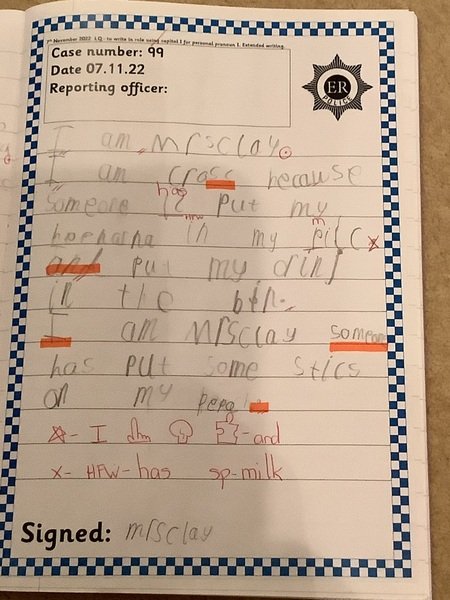 7th November 2022 LQ - to write in role using capital I for personal pronoun I. Extended writing.
Case number: 99
Date 07.11.22
Reporting officer:
ER
POLICE
I am Mrsclay.
I am cross because
has
Someone is put my
in my
m
and put my
in the bin.
I am Mrsclay Someone
has put some stics
on my
I and
x- HFW-has sp-milk
Signed: mrsclay